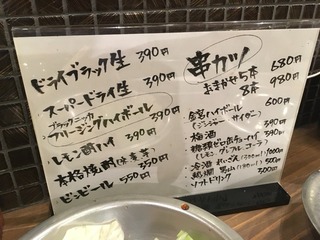 ドライブラック生 390円
スーパードライ生 390円
ブラックニッカ
クリージングハイボール 390円
レモン酎ハイ 390円
本格焼酎(米麦芋) 350円
ビンビール 550円
串カツ
おまかせ5本 680円
8本 980円
ハイボール 600円
(ジンジャー サイダー)
梅酒 390円
糖類ゼロ缶チューハイ 390円
(レモン グレフル コーラ)
冷酒 (300ml) 1000円
熱燗 (180ml) 500円
ソフトドリンク 300円